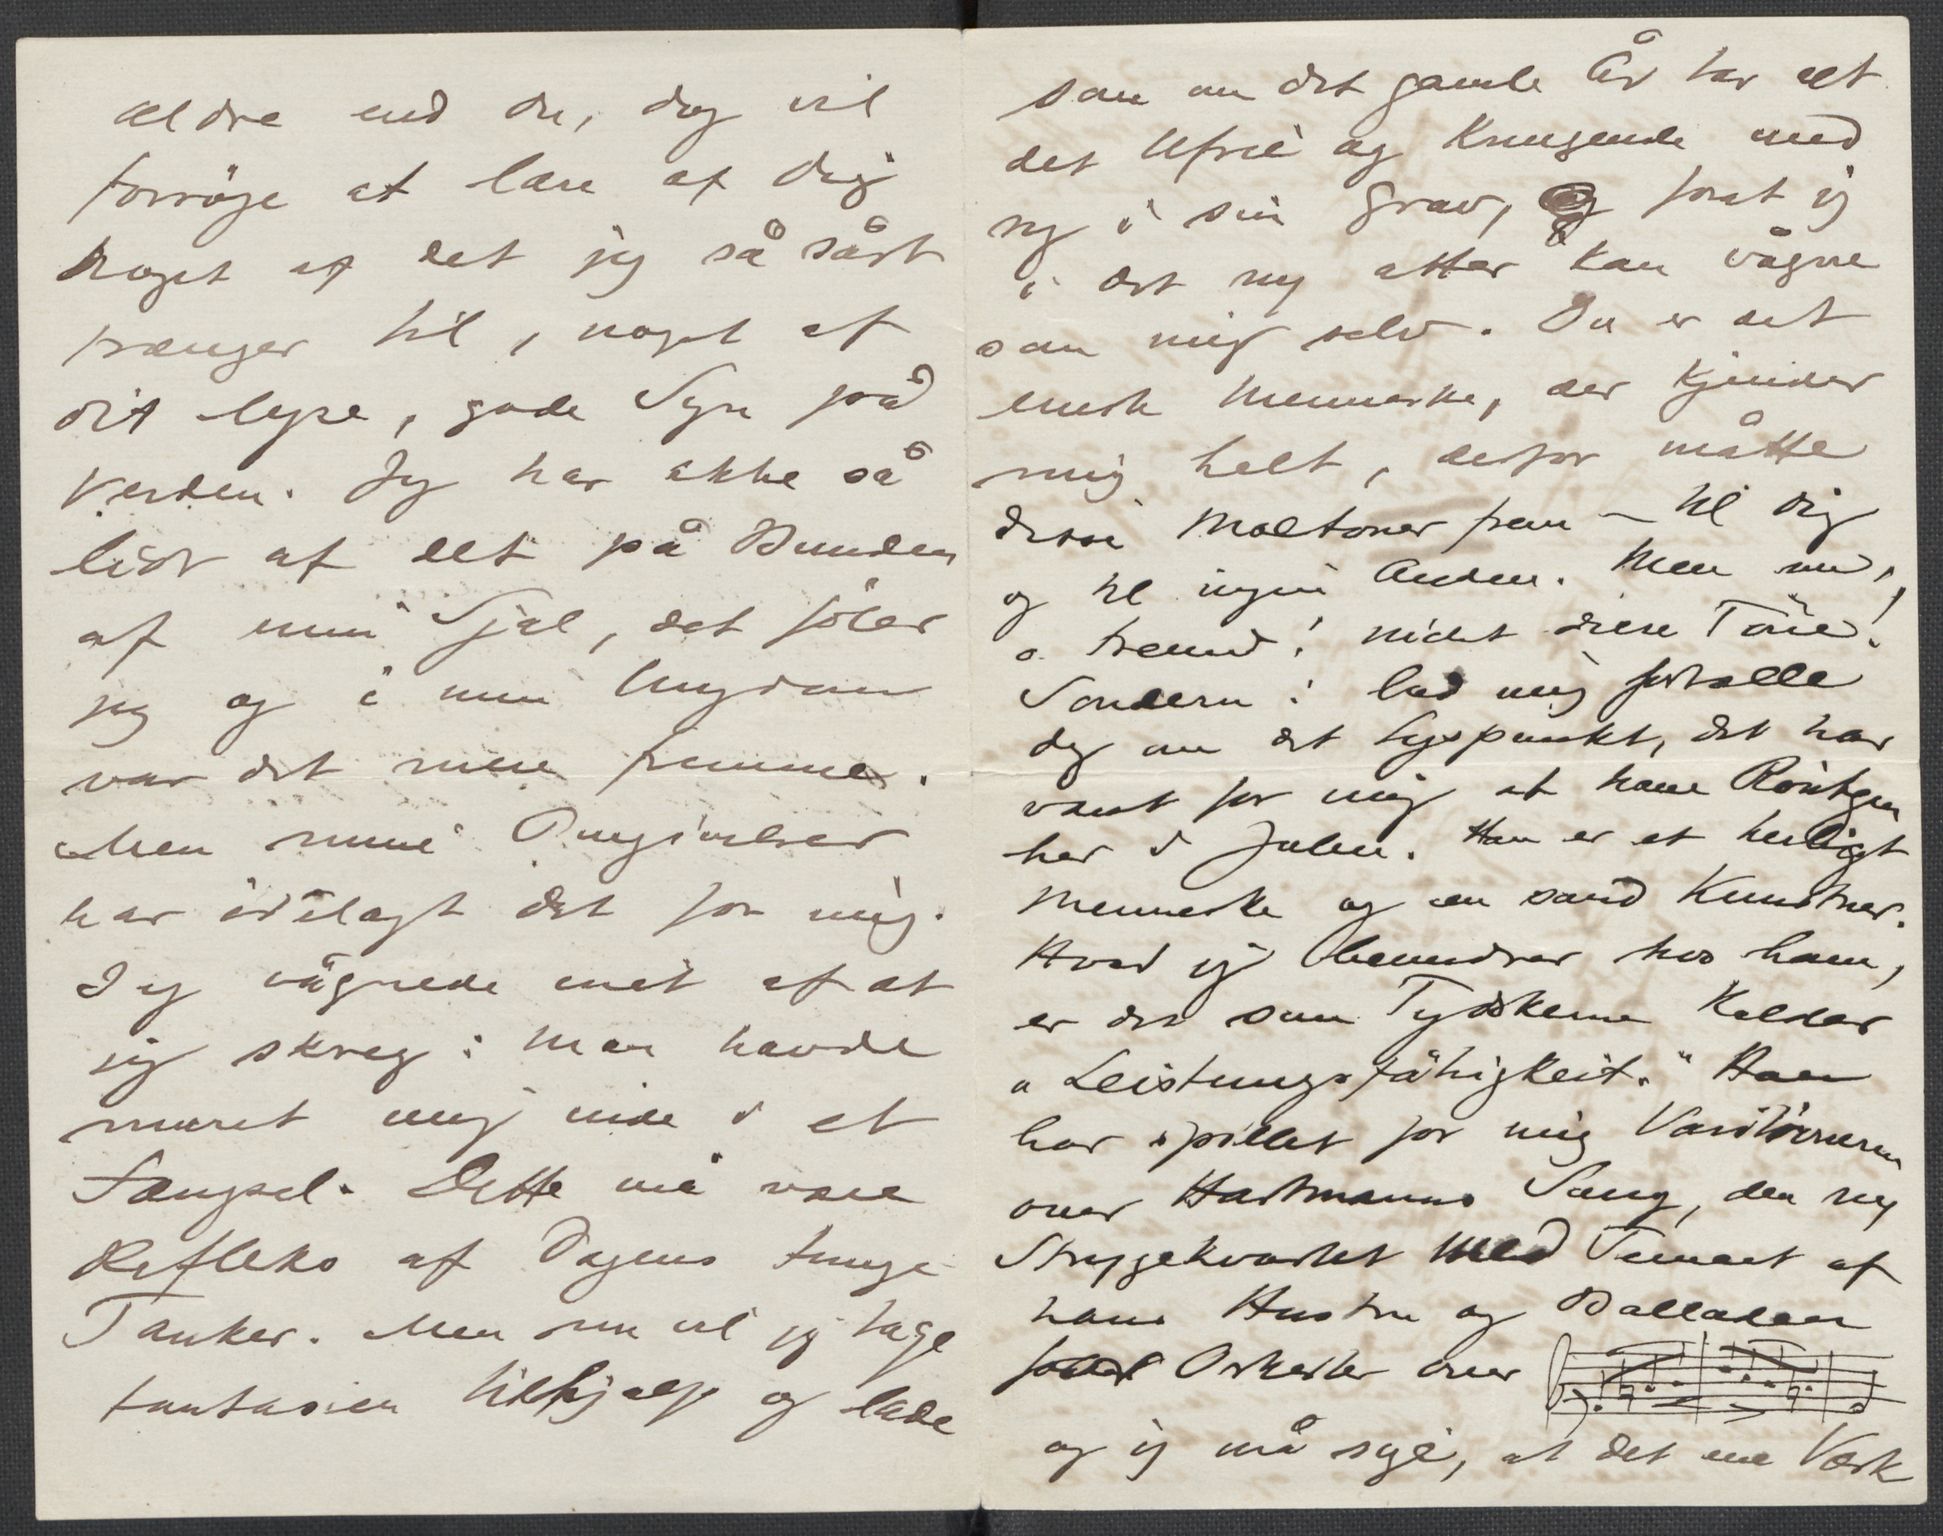 ældre end du, dog vil
forsöge at lære af dig
Noget af det jeg så sårt
trænger til, noget af
dit lyse, gode Syn på
Verden. Jeg har ikke så
lidt af det på Bunden
af min Sjæl, det föler
jeg og i min Ungdom
var det mere fremme.
Men mine Omgivelser
har ödelagt det for mig.
Jeg vågnede inat af at
jeg skreg: Man havde
muret mig inde i et
Fængsel. Dette må være
Refleks af Dagens tunge
Tanker. Men nu vil jeg tage
Fantasien tilhjælp og lade
som om det gamle År tar alt
det Ufrie og Knugende med
sig i sin Grav, forat jeg
i det ny atter kan vågne
som mig selv. Du er det
eneste Menneske, der kjender
mig helt, derfor måtte
disse Moltoner frem – til dig
og til ingen Anden. Men nu,
o Freund! nicht diese Töne!
Sondern: lad mig fortælle
dig om det Lyspunkt, det har
været for mig at have Röntgen
her i Julen. Han er et herligt
Menneske og en sand Kunstner.
Hvad jeg beundrer hos ham,
er det som Tyskerne kalder
„Leistungsfähigkeit." Han
har spillet for mig Variationerne
over Hartmanns Sang, den ny
Strygekvartet med Temaet af
hans Hustru og Balladen
for Orkester over
og jeg må sige, at det ene Værk